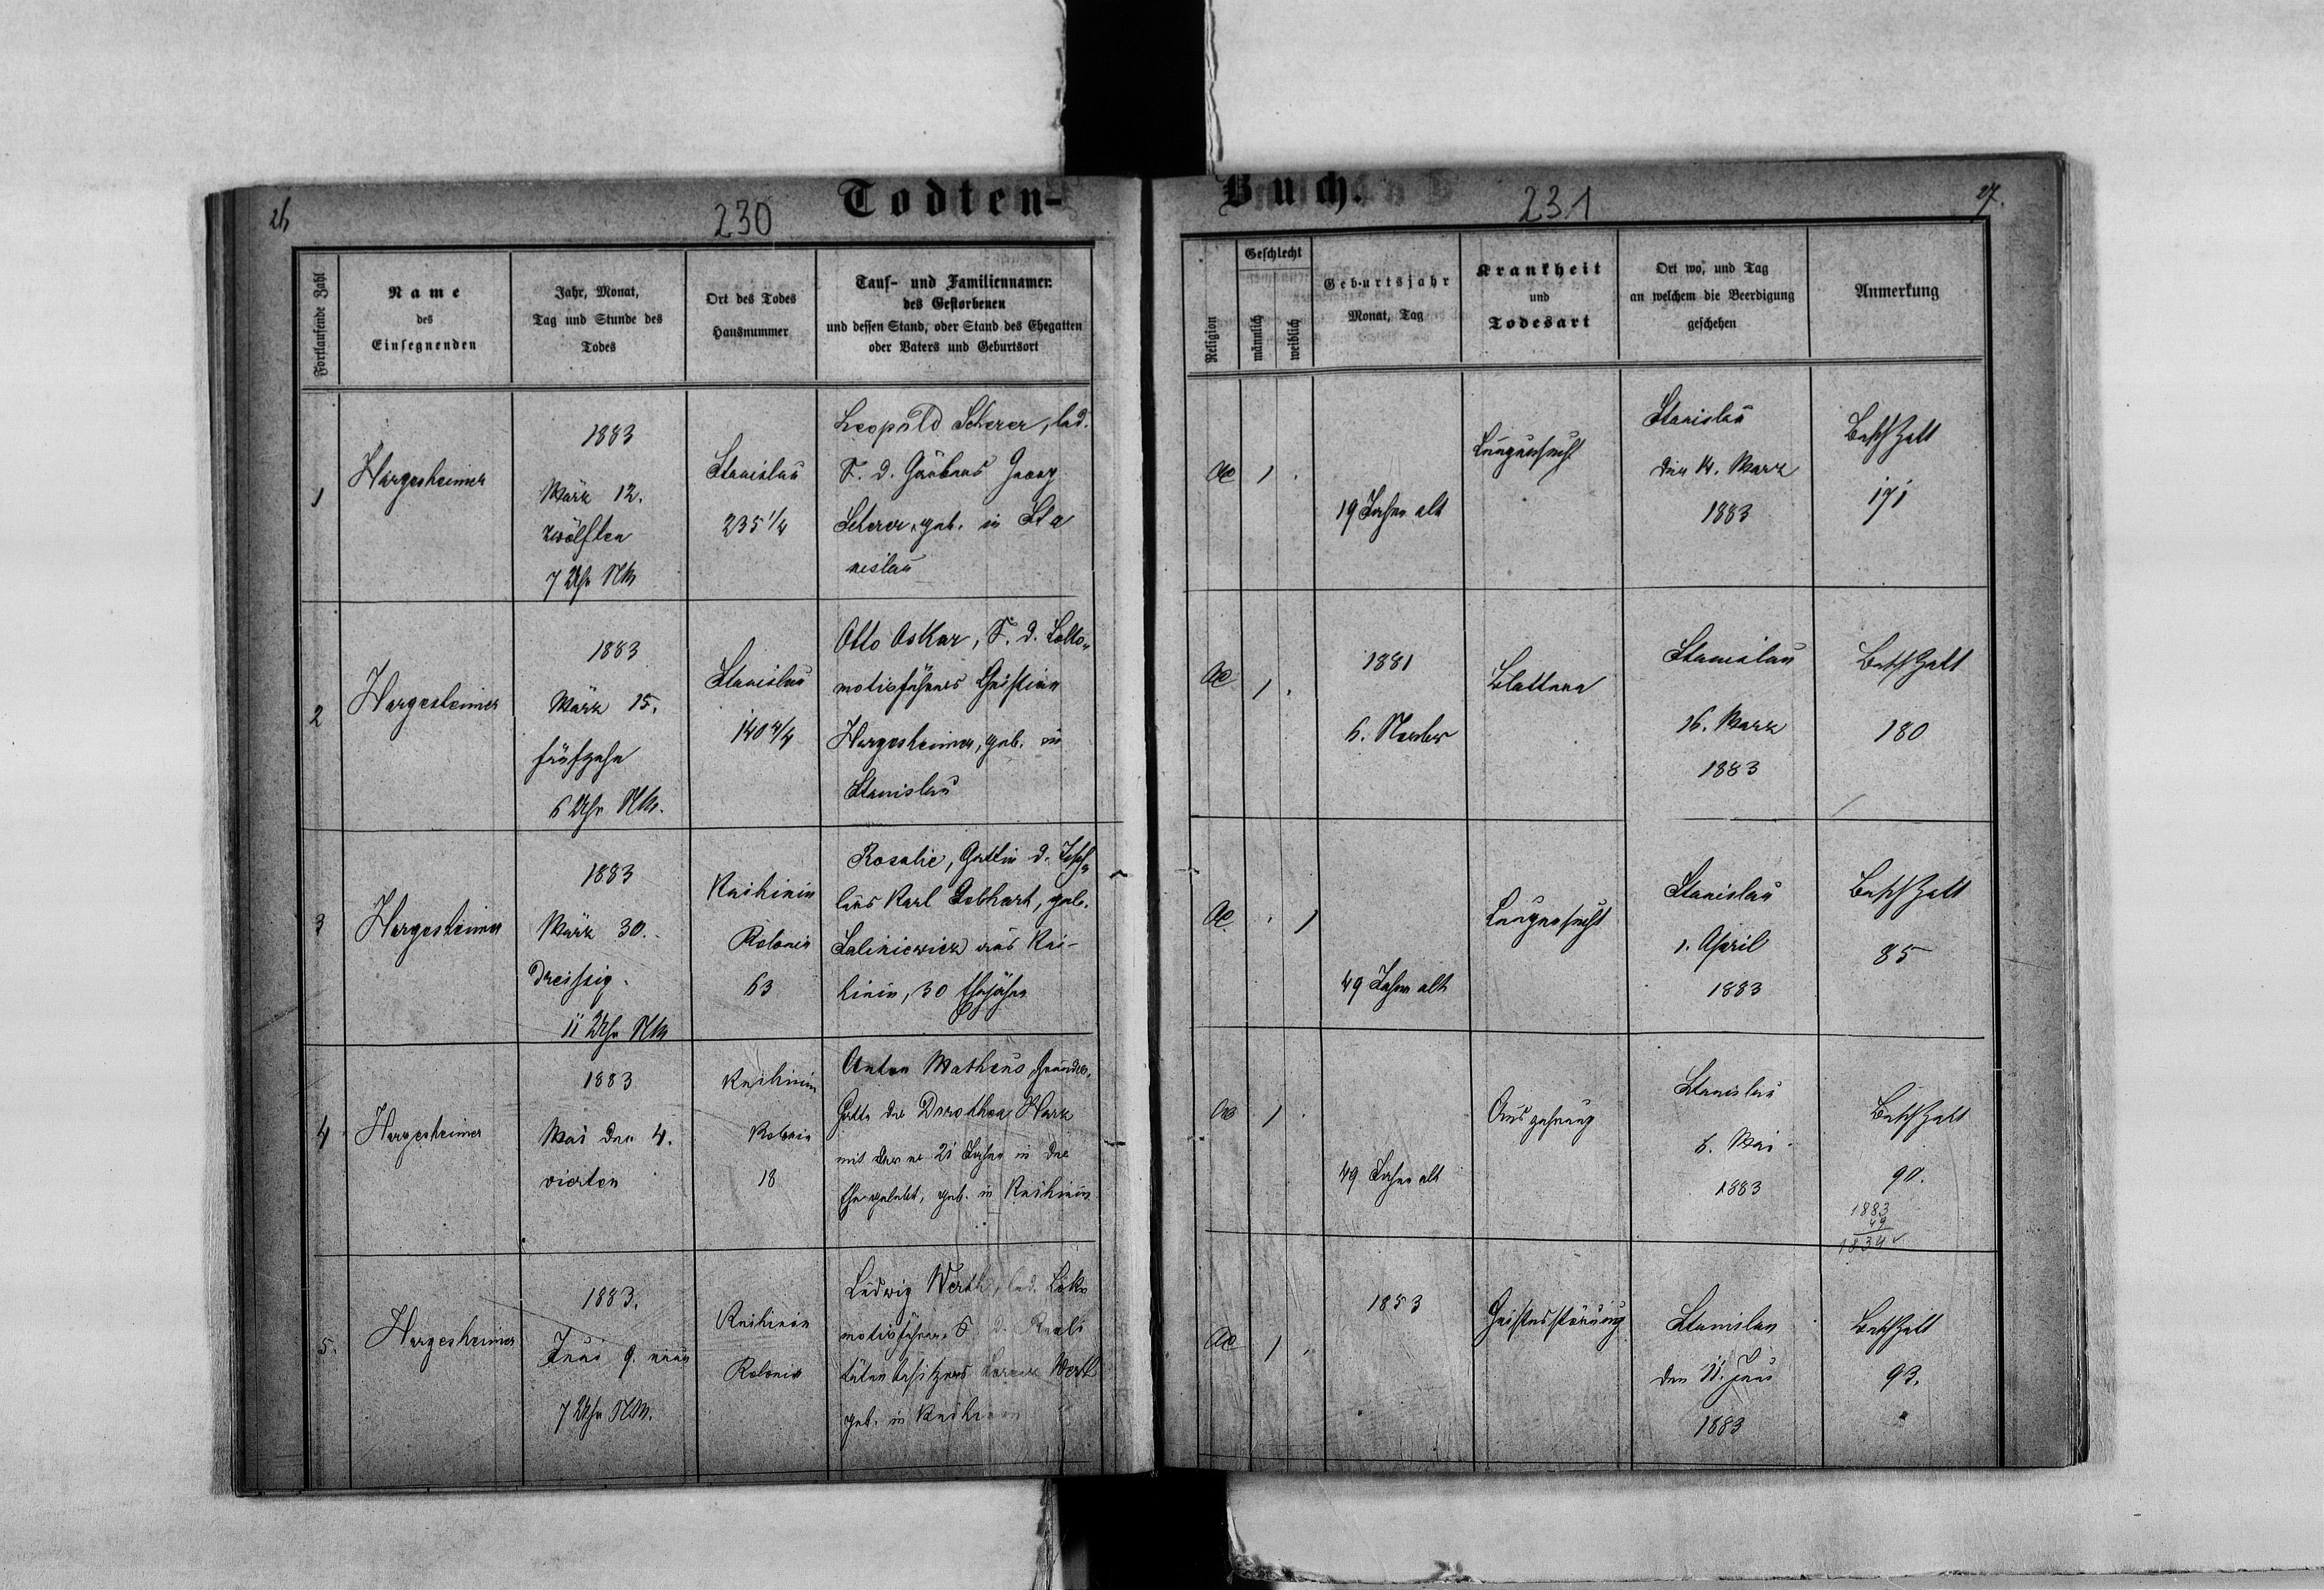 26
230
Todten-
Fortlaufende Zahl
Name
des
Einsegnenden
Jahr, Monat,
Tag und Stunde des
Todes
Ort des Todes
Hausnummer
Tauf- und Familiennamen
des Gestorbenen
und dessen Stand, oder Stand des Ehegatten
oder Vaters und Geburtsort
1
Hargesheimer
1883
März 12.
zwölften
7 Uhr NM
Stanislau
235 1/4
Leopold Scherer, led.
S. d. Georg
Scherer, geb. in Sta
nislau
2
Hargesheimer
1883
März 15.
fünfzehn
6 Uhr NM.
Stanislau
140 4/4
Otto Oskar, S. d. Loko-
motivführers Christian
Hargesheimer, geb. in
Stanislau
3
Hargesheimer
1883
März 30.
dreissig.
11 Uhr NM
Knihinin
Kolonie
63
Rosalie, Gattin d. Tisch-
lers Karl Gebhart, geb.
aus Kni-
hinin, 30 Ehejahre
4
Hargesheimer
1883
Mai den 4.
vierten
Knihinin
Kolonie
18
Anton Matheus,
Gatte der Dorothea
mit der er 21 Jahre in der
Ehe gelebt, geb. in Knihinin
5.
Hargesheimer
1883.
Juni 9. neun
7 Uhr NM.
Knihinin
Kolonie
Ludwig Werth, led. Loko
motivführer, S. d. Reali
tätenbesitzers Werth
geb. in Knihinin
Buch.
231
27.
Religion
Geschlecht
männlich
weiblich
Geburtsjahr
Monat, Tag
Krankheit
und
Todesart
Ort wo, und Tag
an welchem die Beerdigung
geschehen
Anmerkung
AC
1
19 Jahre alt
Lungensucht
Stanislau
den 14. März
1883
BeschZett
171
AC
1
1881
6. November
Blattern
Stanislau
16. März
1883
BeschZett
180
AC
1
49 Jahre alt
Lungensucht
Stanislau
1. April
1883
BeschZett
85
AC
1
49 Jahre alt
Auszehrung
Stanislau
6. Mai
1883
BeschZett
90.
1883
49
1834
AC
1
1853
Geistesstörung
Stanislau
den 11. Juni
1883
BeschZett
93.